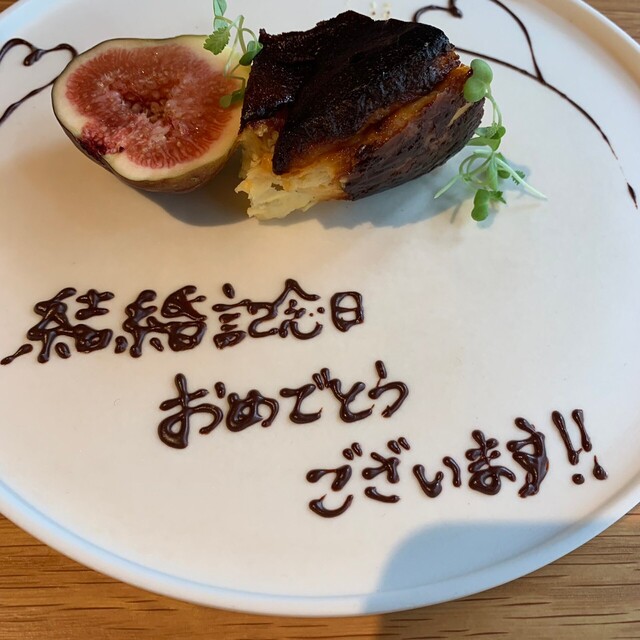 結婚記念日
おめでとう
ございます!!